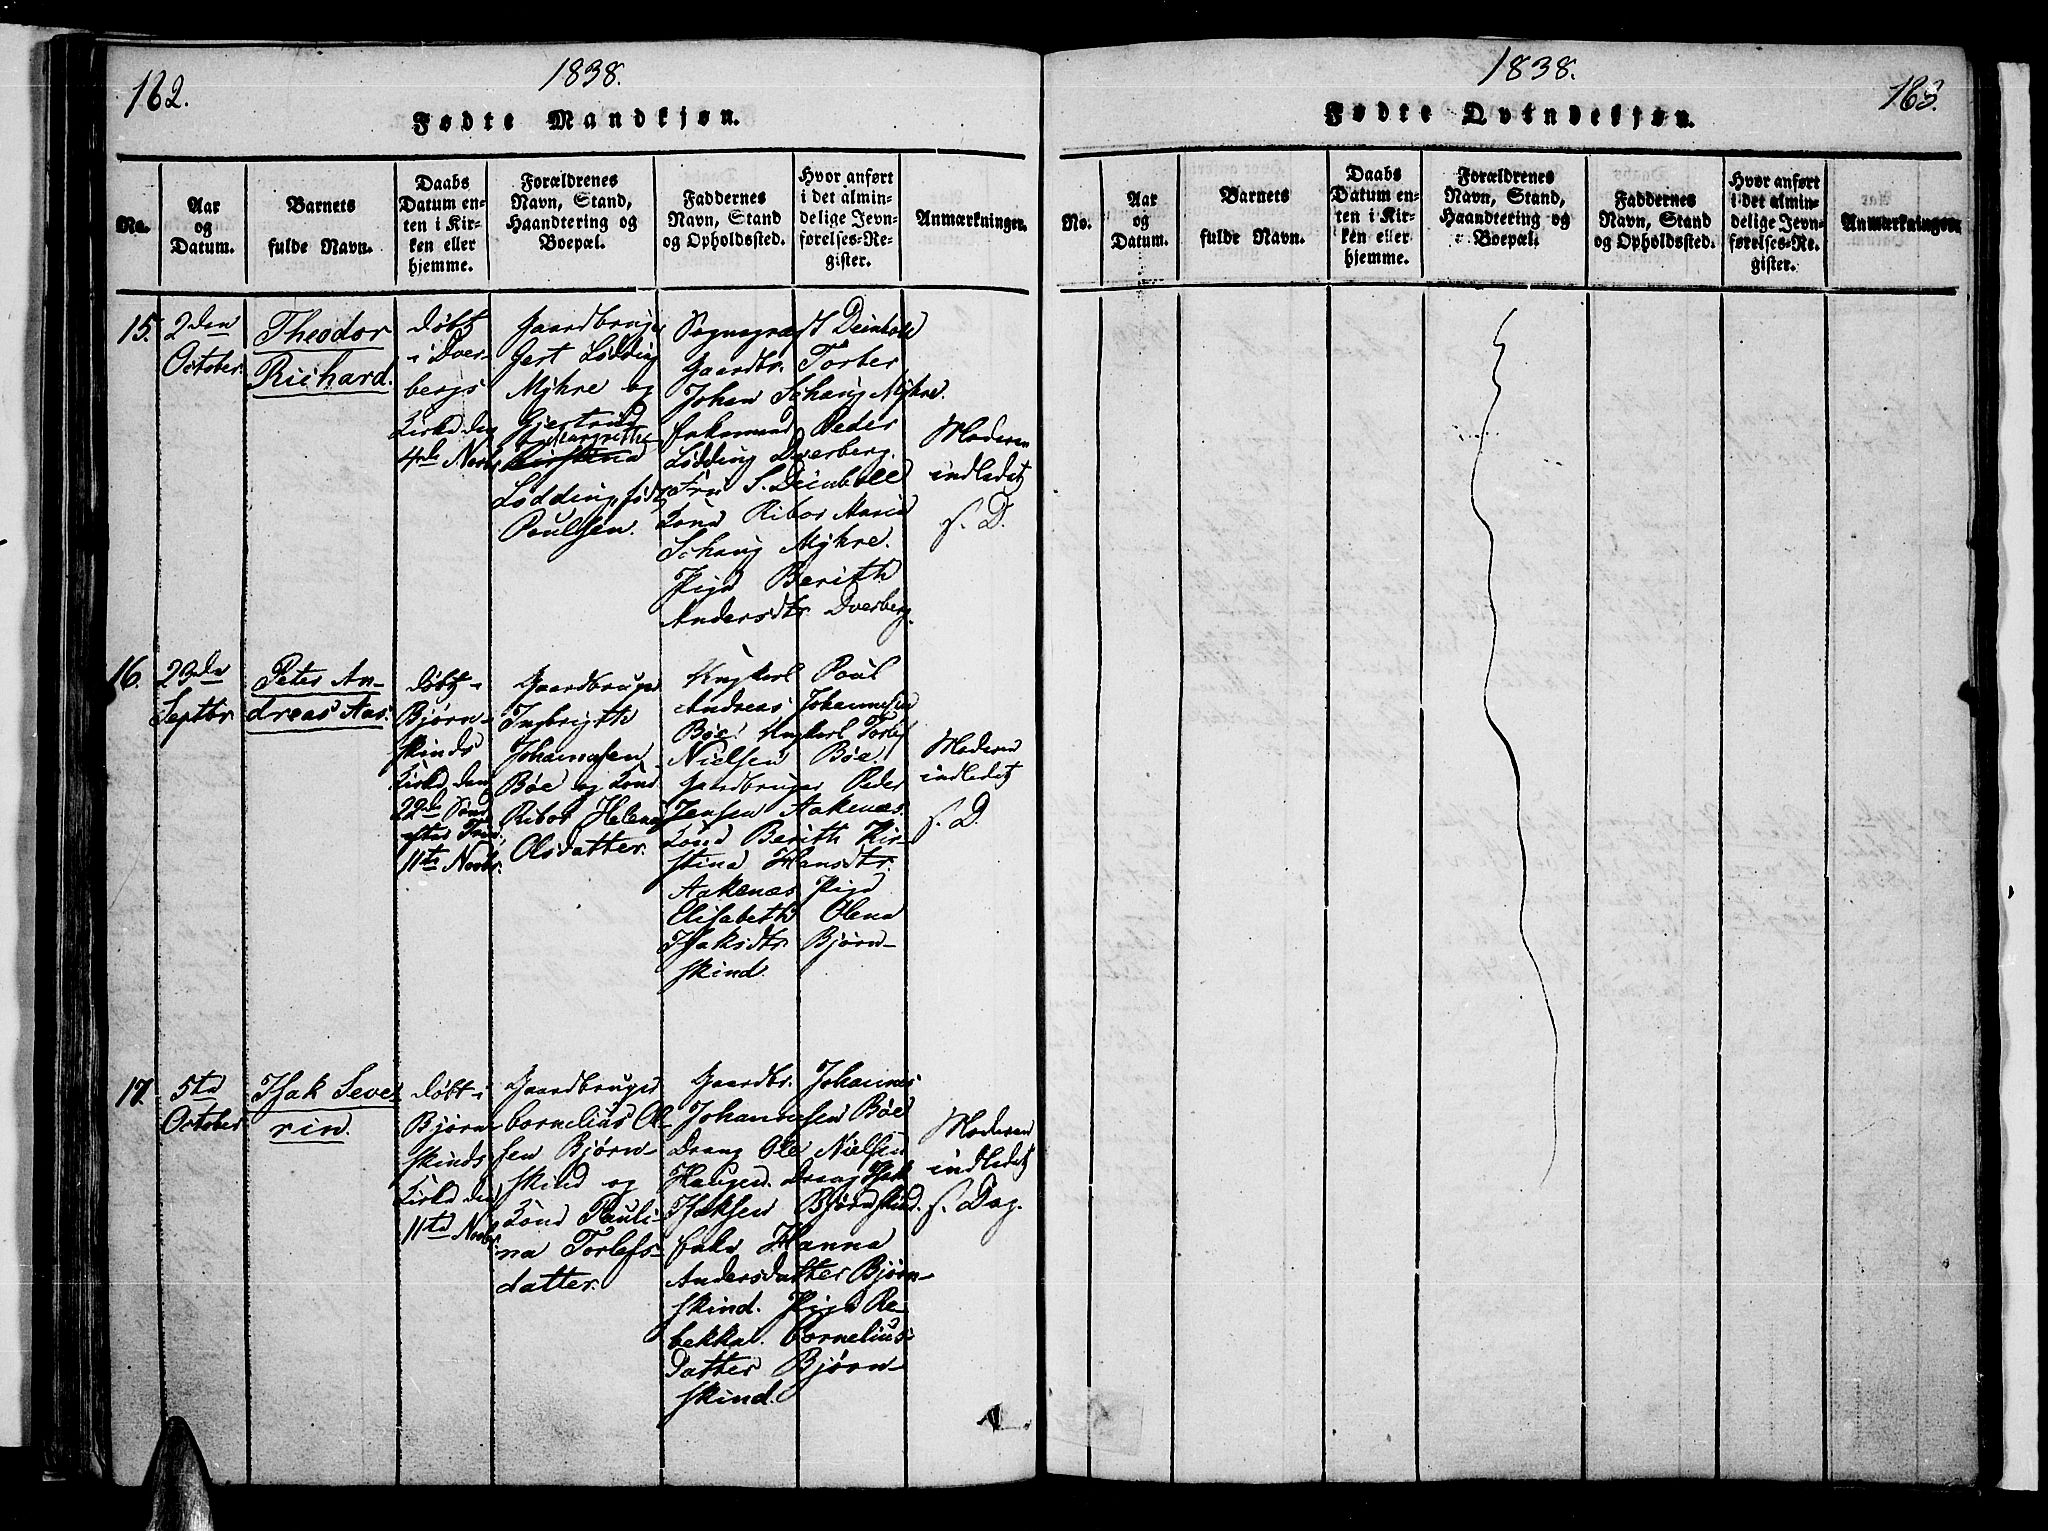 162.
1838.
Fødte Mandkjøn.
No.
Aar
og
Datum.
Barnets
fulde Navn.
Daabs
Datum en-
ten i Kir-
ken eller
hjemme.
Forældrenes
Navn, Stand,
Haandtering og
Boepæl.
Faddernes
Navn, Stand
og Opholdssted.
Hvor anført
i det almin-
delige Jevn-
førelses-Re-
gister.
Anmærkninger.
15.
2den
October.
Theodor
Richard.
døbt
i Dver-
bergs
Kirke den
4de Novbr
Gaardbruger
Gert Lødding
Myhre og
Gjertrud
Margrethe
Kirstina
Lødding, født
Poulsen.
Sognepræst Deinboll
Gaardbr. Torber
Johan Schanz Myhre.
Enkemand Peder
Lødding Dverberg.
Fru S. Deinboll
Kone Ribor Maria
Schanz Myhre.
Pige Berith
Andersdtr. Dverberg.
Moderen
indledet
s. D.
16.
29de
Septbr
Peter An-
dreas Aas.
døbt i
Bjørn-
skinds
Kirke den
22de Sønd.
efter Trin.
11te Novbr.
Gaardbruger
Ingbrigth
Johannesen
Bøe og Kone
Ribor Helena
Olsdatter.
Ungkarl Poul
Andreas Johannesen
Bøe. Ungkarl Torlef
Nielsen Bøe.
Gaardbruger Peder
Jensen Aakenæs.
Kone Berith Kir-
stina Hansdtr.
Aakenæs. Pige
Elisabeth Olena
Isaksdtr. Bjørn-
skind.
Moderen
indledet
s. D.
17.
5te
October
Isak Seve-
rin.
døbt i
Bjørn-
skinds
Kirke den
11te Novbr.
Gaardbruger
Cornelius Ol-
sen Bjørn-
skind og
Kone Pauli-
na Torlefs-
datter.
Gaardbr. Johannes
Johannesen Bøe
Dreng Ole Nielsen
Haugen. Dreng Isak
Isaksen Bjørnskind.
Enke Hanna
Andersdatter Bjørn-
skind. Pige Re-
bekka Cornelius-
Datter Bjørn-
skind.
Moderen
indledet
s. Dag.
1838.
163.
Fødte Qvindekjøn.
No.
Aar
og
Datum.
Barnets
fulde Navn.
Daabs
Datum en-
ten i Kir-
ken eller
hjemme.
Forældrenes
Navn, Stand,
Haandtering og
Boepæl.
Faddernes
Navn, Stand
og Opholdssted.
Hvor anført
i det almin-
delige Jevn-
førelses-Re-
gister.
Anmærkninger.